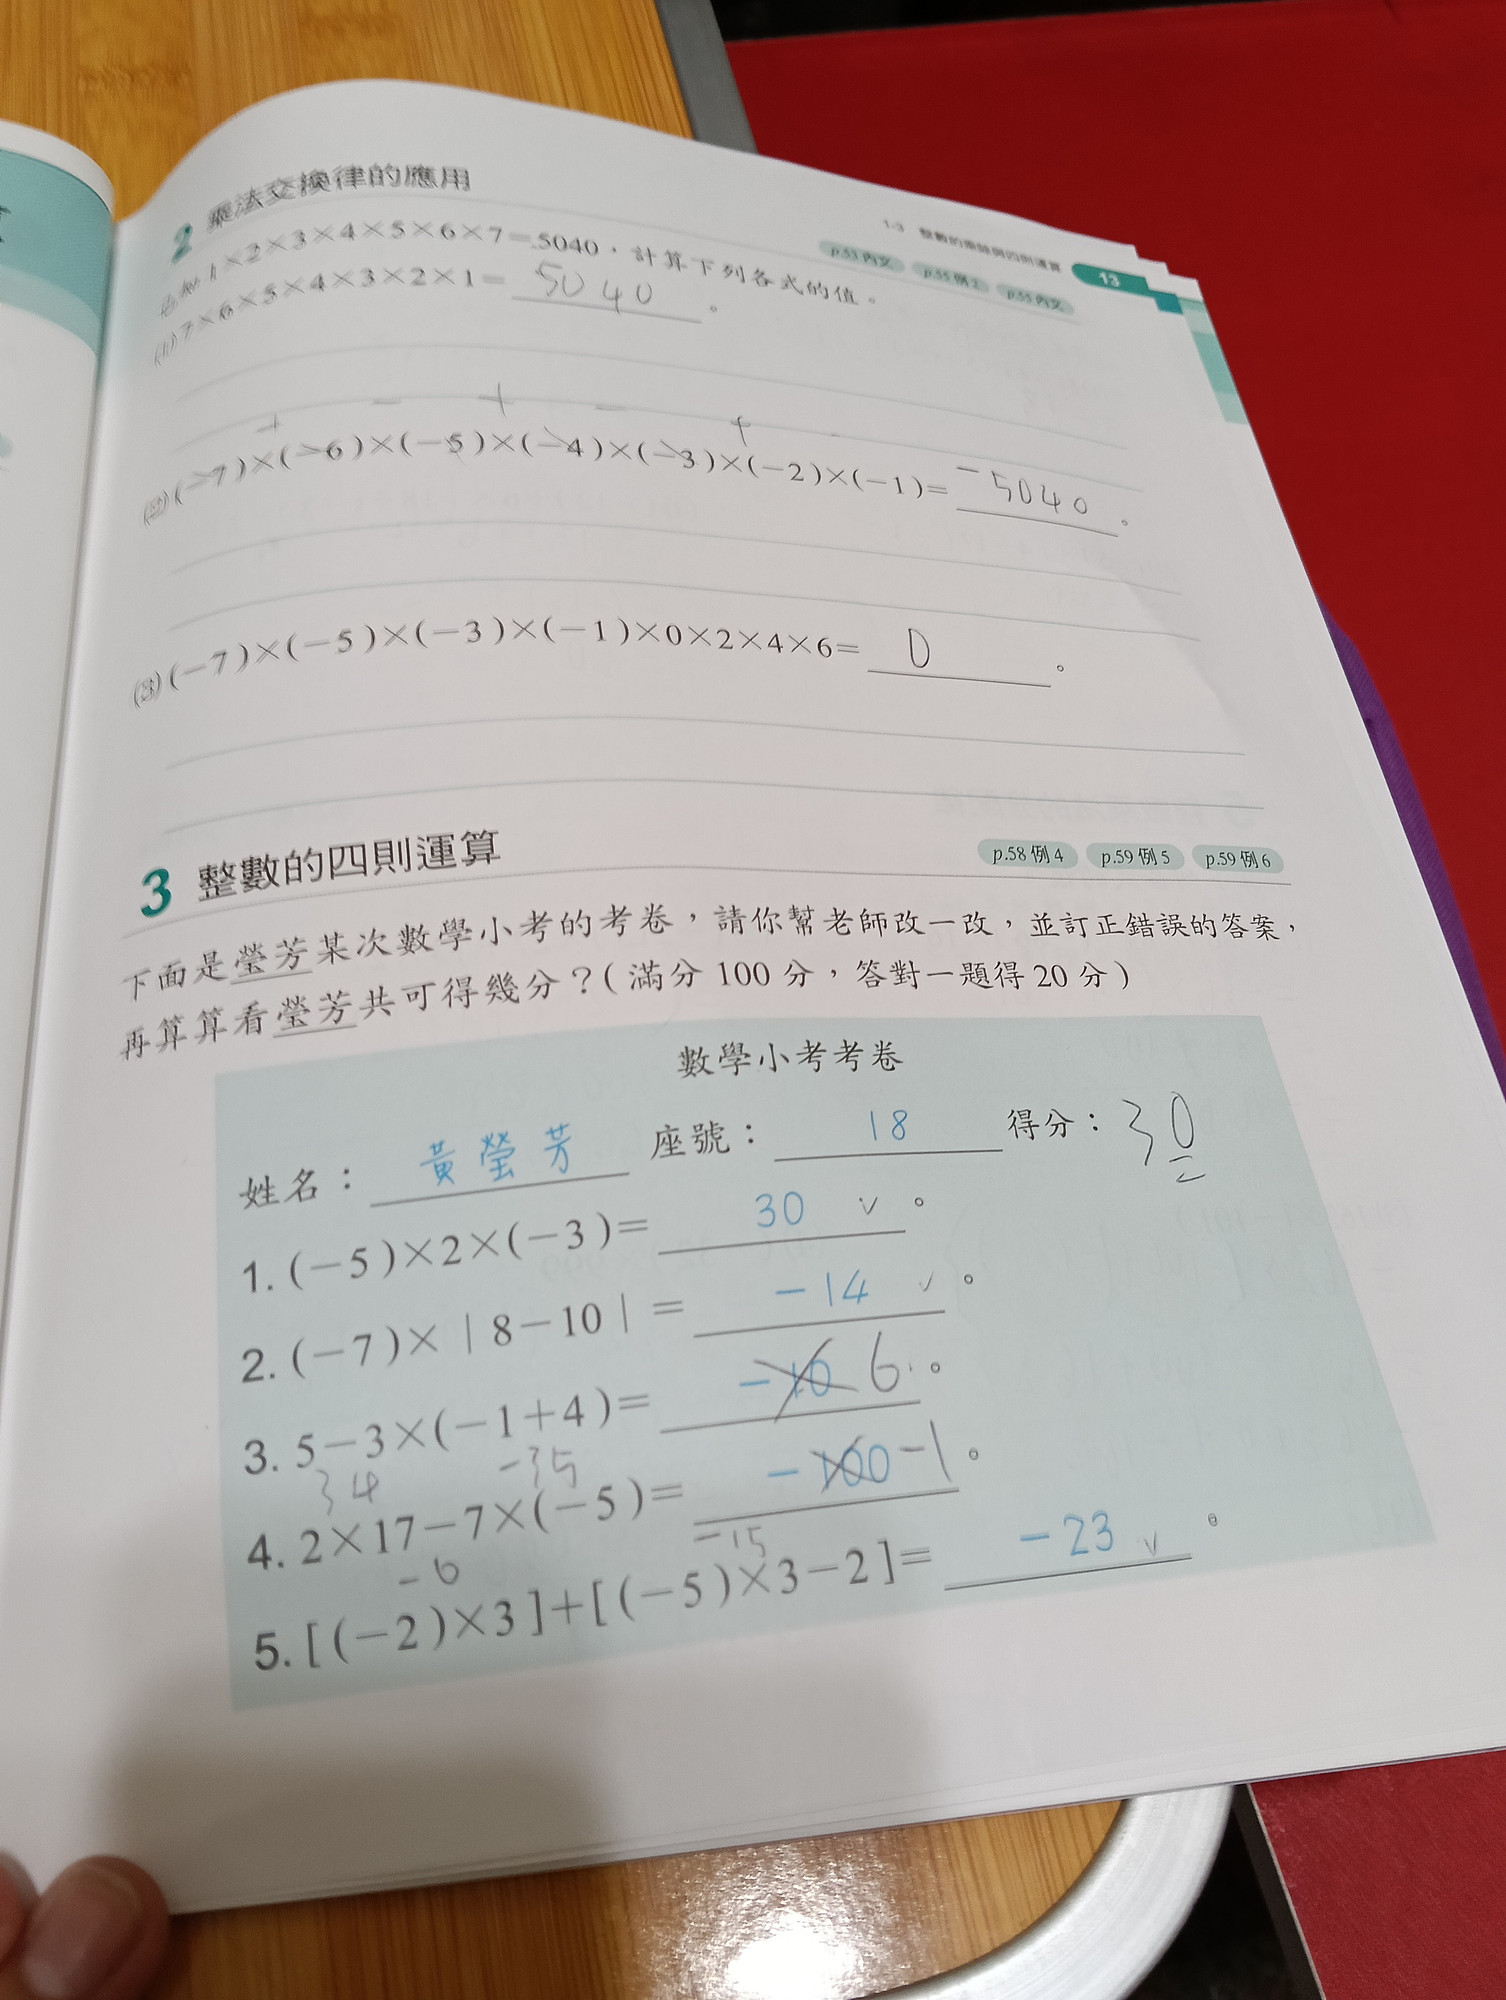 1-3 整數的乘除與四則運算 13
2 乘法交換律的應用
p.53 內文 p.55 例 2 p.55 內文
已知 1×2×3×4×5×6×7=5040，計算下列各式的值。
(1) 7×6×5×4×3×2×1= 5040 。
+ − + − +
(2) (−7)×(−6)×(−5)×(−4)×(−3)×(−2)×(−1)= −5040 。
(3) (−7)×(−5)×(−3)×(−1)×0×2×4×6= 0 。
3 整數的四則運算 p.58 例 4 p.59 例 5 p.59 例 6
下面是瑩芳某次數學小考的考卷，請你幫老師改一改，並訂正錯誤的答案，
再算算看瑩芳共可得幾分？（滿分 100 分，答對一題得 20 分）
數學小考考卷
姓名： 黃瑩芳 座號： 18 得分： 30
1. (−5)×2×(−3)= 30 ✓ 。
2. (−7)×|8−10|= −14 ✓ 。
3. 5−3×(−1+4)= −10 6 。
34 −35
4. 2×17−7×(−5)= −100 −1 。
−6 −15
5. [(−2)×3]+[(−5)×3−2]= −23 ✓ 。